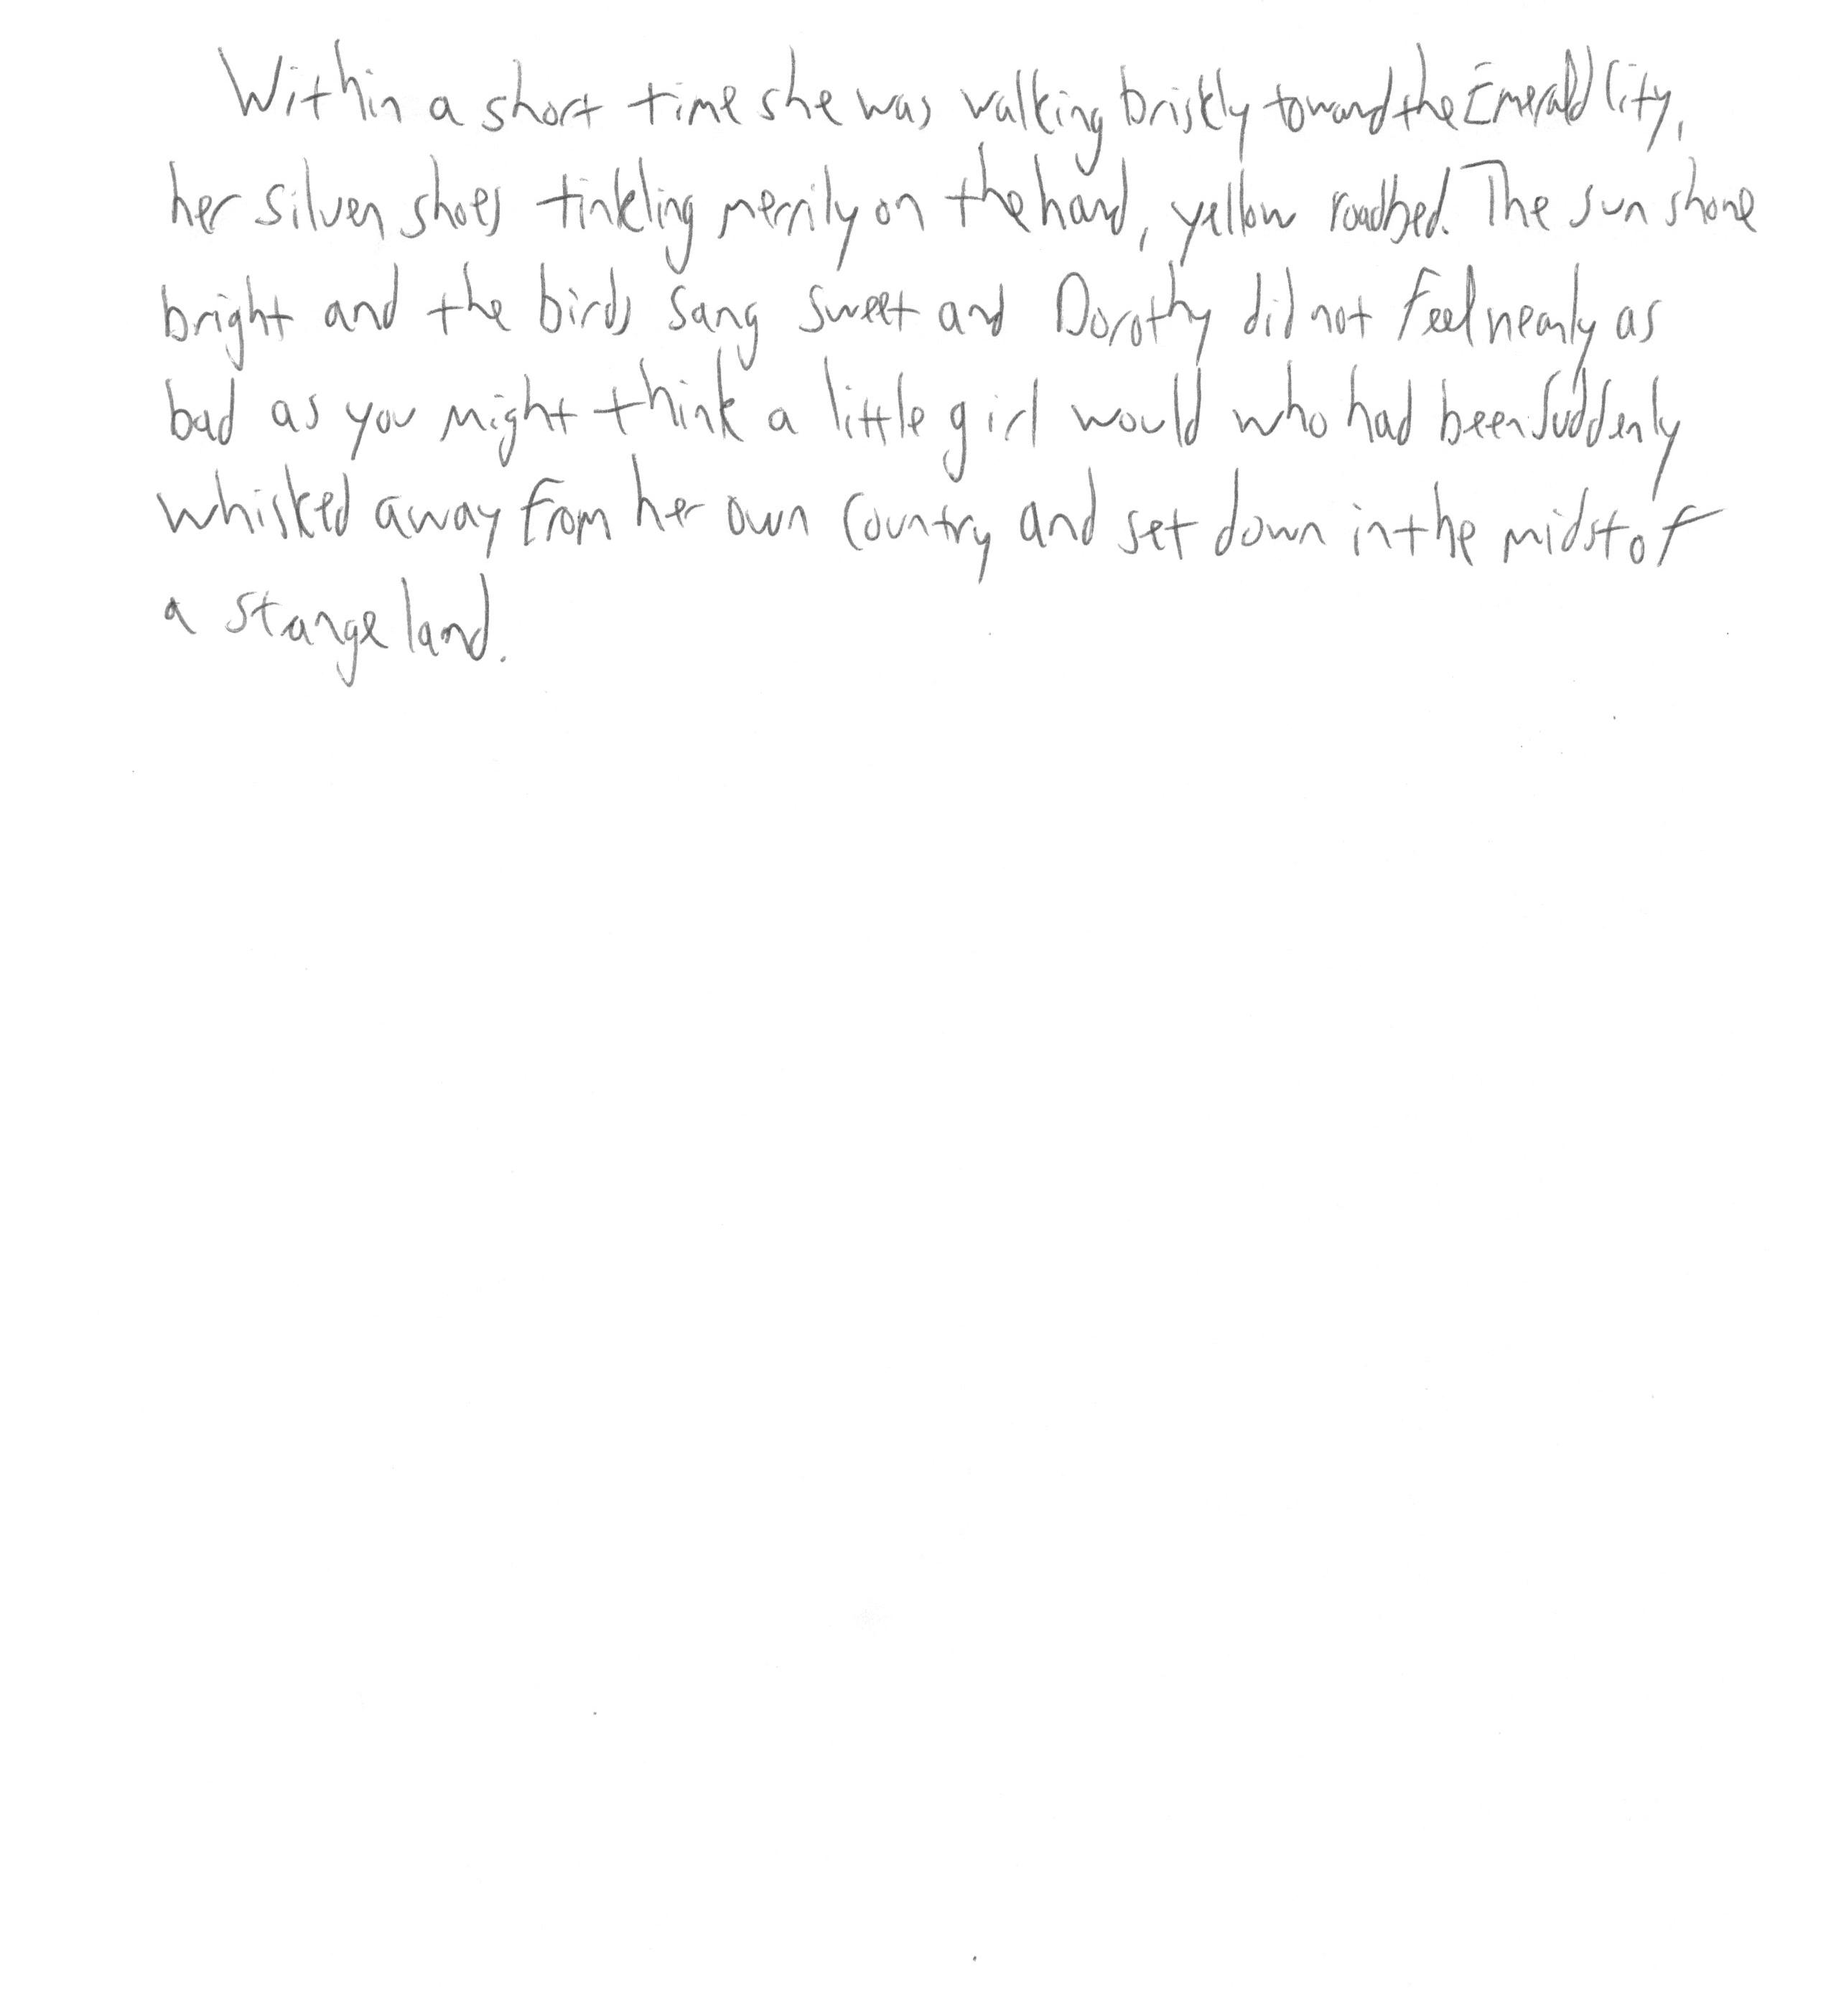 Within a short time she was walking briskly toward the Emerald City,
her silver shoes tinkling merrily on the hard, yellow roadbed. The sun shone
bright and the birds sang sweet and Dorothy did not feel nearly as
bad as you might think a little girl would who had been suddenly
whisked away from her own country and set down in the midst of
a stange land.